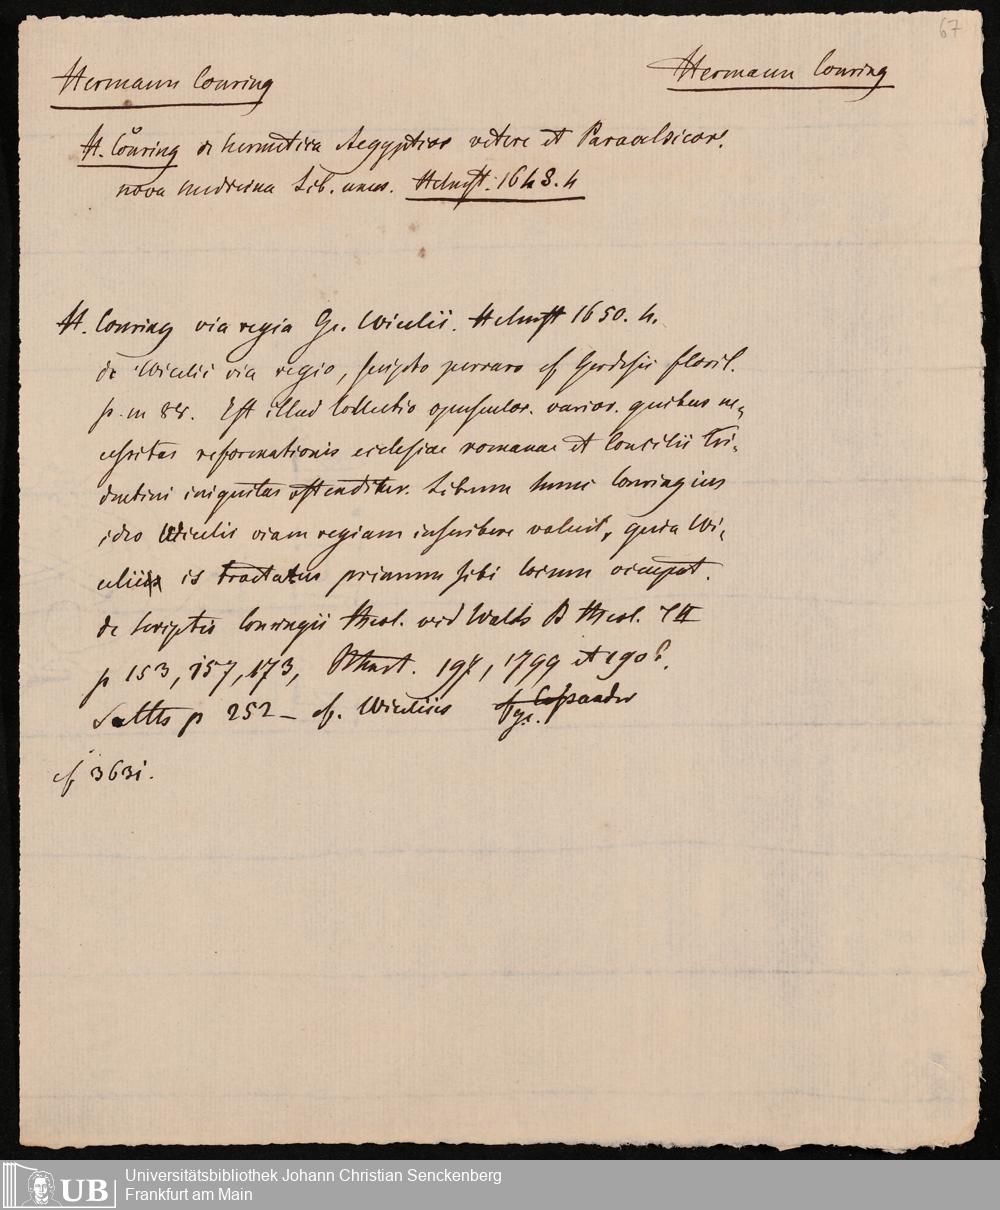 67
Hermann Conring Hermann Conring
H. Conring de hermetica Aegyptior vetere et Paracelsicor.
nova medicina Lib. unus. Helmst. 1648. 4
H. Conring via regia Ge. Wicelii. Helmst 1650. 4.
de Wicelii via regia, scripto perraro cf Gerdesii floril.
p. m 88. Est illud Collectio opusculor. varior. quibus ne-
cessitas reformationis ecclesiae romanae et Concilii Tri-
dentini iniquitas ostenditur. Librum hunc Conringius
ideo Wicelii viam regiam inscribere voluit, quia Wi-
celii is tractatus primum sibi locum occupat.
de scriptis Conringii theol. vid Walch B theol. T II
p 153, 157, 173, 197, 1799 et 190
p 252 – cf. Wicelius cf Cassander
ge.
cf 3631.
Universitätsbibliothek Johann Christian Senckenberg
Frankfurt am Main
UB